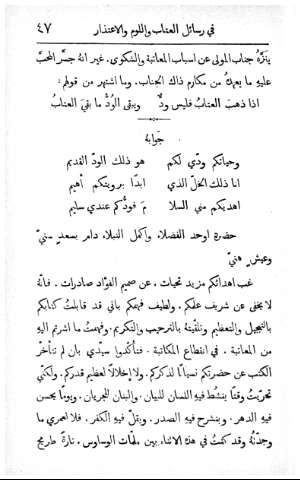 في رسائل العتاب واللوم والاعتذار ٤٧
ينزّه جناب المولى عن اسباب المعاتبة والشكوى. غير انهُ جسّر المحبّ
عليهِ ما يعهدُ من مكارم ذاك الجناب. وما اشتهر من قولهم:
اذا ذهبَ العتابُ فليس ودٌّ ويبقى الودُّ ما بقيَ العتابُ
جوابهُ
وحياتكم ودّي لكم هو ذلك الودّ القديم
انا ذلك الخلّ الذي ابدًا برويتكم أهيم
اهديكم مني السلا مَ فودُّكم عندي سليم
حضرة اوحد الفضلاء واكمل النبلاء دام بسعدٍ سنيّ
وعيشٍ هنيّ
غب اهدائكم مزيد تحيات، عن صميم الفؤاد صادرات. فانهُ
لا يخفى عن شريف علمكم. ولطيف فهمكم باني قد قابلتُ كتابكم
بالتبجيل والتعظيم وتلقّيتهُ بالترحيب والتكريم. وفهمتُ ما اشرتم اليهِ
من المعاتبة. في انقطاع المكاتبة. فتأكدوا سيّدي بان لم تتأخّر
الكتب عن حضرتكم نسيانًا لذكركم. ولا إخلالًا لعظيم قدركم. ولكنّي
تحرّيتُ وقتًا ينشطُ فيهِ اللسان للبيان. والبنان للجريان. ويومًا يحسن
فيهِ الدهر. وينشرح فيهِ الصدر. ويقلّ فيهِ الكفر. فلا لعمري ما
وجدتُهُ وقد كنتُ في هذه الاثناء بين لمّات الوساوس. تارةً طريح